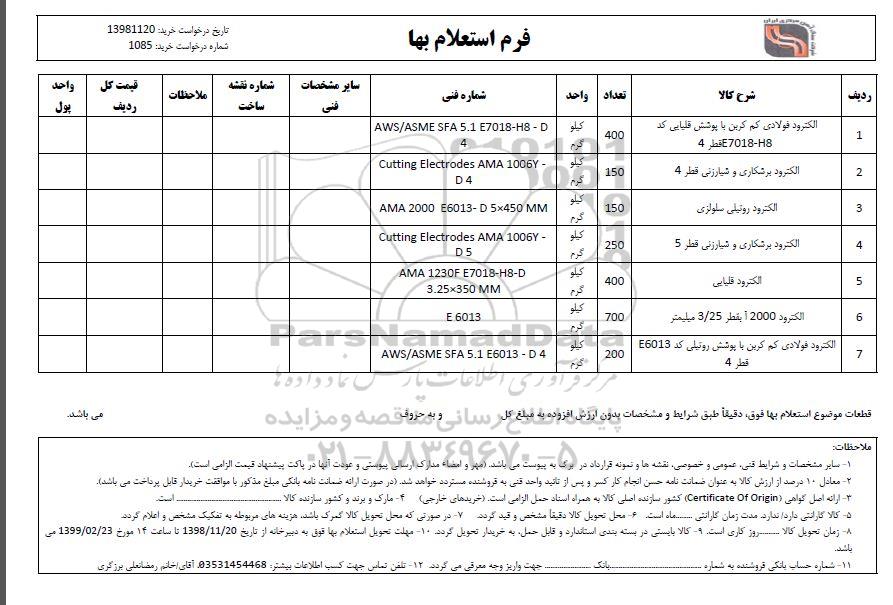 فرم استعلام بها
تاریخ درخواست خرید: 13981120
شماره درخواست خرید: 1085
ردیف شرح کالا تعداد واحد شماره فنی سایر مشخصات فنی شماره نقشه ساخت ملاحظات قیمت کل ردیف واحد پول
1 الکترود فولادی کم کربن با پوشش قلیایی کد E7018-H8قطر 4 400 کیلو گرم AWS/ASME SFA 5.1 E7018-H8 - D 4
2 الکترود برشکاری و شیارزنی قطر 4 150 کیلو گرم Cutting Electrodes AMA 1006Y - D 4
3 الکترود روتیلی سلولزی 150 کیلو گرم AMA 2000 E6013- D 5×450 MM
4 الکترود برشکاری و شیارزنی قطر 5 250 کیلو گرم Cutting Electrodes AMA 1006Y - D 5
5 الکترود قلیایی 400 کیلو گرم AMA 1230F E7018-H8-D 3.25×350 MM
6 الکترود 2000 آ بقطر 3/25 میلیمتر 700 کیلو گرم E 6013
7 الکترود فولادی کم کربن با پوشش روتیلی کد E6013 قطر 4 200 کیلو گرم AWS/ASME SFA 5.1 E6013 - D 4
ParsNamadData
مرکز فرآوری اطلاعات پارس نماد داده ها
پایگاه اطلاع رسانی مناقصه و مزایده
۰۲۱-۸۸۳۴۹۶۷۰-۵
قطعات موضوع استعلام بها فوق، دقیقاً طبق شرایط و مشخصات بدون ارزش افزوده به مبلغ کل و به حروف می باشد.
ملاحظات:
۱- سایر مشخصات و شرایط فنی، عمومی و خصوصی، نقشه ها و نمونه قرارداد در برگ به پیوست می باشد. (مهر و امضاء مدارک ارسالی پیوستی و عودت آنها در پاکت پیشنهاد قیمت الزامی است).
۲- معادل ۱۰ درصد از ارزش کالا به عنوان ضمانت نامه حسن انجام کار کسر و پس از تائید واحد فنی به فروشنده مسترد خواهد شد. (در صورت ارائه ضمانت نامه بانکی مبلغ مذکور با موافقت خریدار قابل پرداخت می باشد).
۳- ارائه اصل گواهی (Certificate Of Origin) کشور سازنده اصلی کالا به همراه اسناد حمل الزامی است. (خریدهای خارجی) ۴- مارک و برند و کشور سازنده کالا ........................ است.
۵- کالا گارانتی دارد/ ندارد. مدت زمان گارانتی ........ماه است. ۶- محل تحویل کالا دقیقاً مشخص و قید گردد. ۷- در صورتی که محل تحویل کالا گمرک باشد، هزینه های مربوطه به تفکیک مشخص و اعلام گردد.
۸- زمان تحویل کالا ..........روز کاری است. ۹- کالا بایستی در بسته بندی استاندارد و قابل حمل، به خریدار تحویل گردد. ۱۰- مهلت تحویل استعلام بها فوق به دبیرخانه از تاریخ 1398/11/20 تا ساعت ۱۴ مورخ 1399/02/23 می
باشد.
۱۱- شماره حساب بانکی فروشنده به شماره ........................بانک ................ جهت واریز وجه معرفی می گردد. ۱۲- تلفن تماس جهت کسب اطلاعات بیشتر: 03531454468. آقای/خانم رمضانعلی برزگری